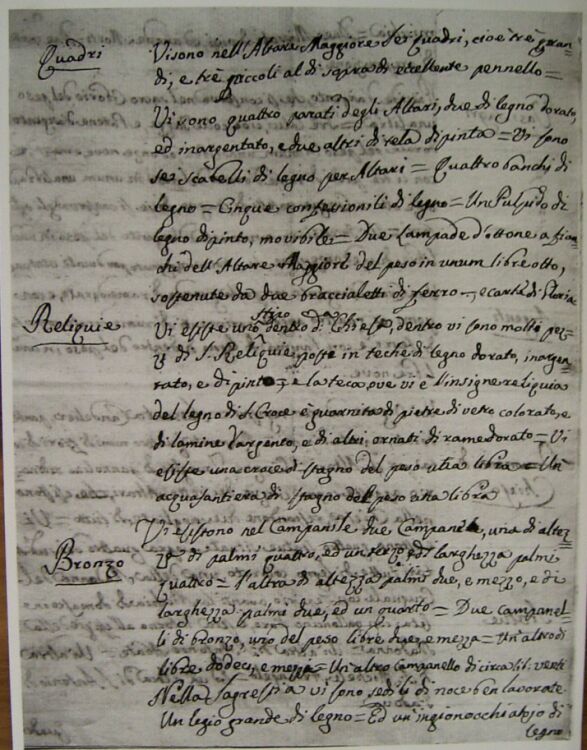 Quadri
Vi sono nell'Altare Maggiore sei quadri, cioè trè gran-
di, e trè piccoli al di sopra di eccellente pennello =
Vi sono quattro parati degli Altari, due di legno dorato,
ed inargentato, e due altri di tela dipinta = Vi sono
sei scabelli di legno per Altari = Quattro banchi di
legno = Cinque confessionili di legno = Un Pulpido di
legno dipinto, movibile = Due Lampade d'ottone a fian-
chi dell'Altare Maggiore del peso in unum libre otto,
sostenute da due braccialetti di ferro = e carta di Gloria
Reliquie
stipo
Vi esiste uno dentro d.a Chiesa, dentro vi sono molti pez-
zi di S. Reliquie, poste in teche di legno dorato, inargen-
tato, e dipinto = e la teca, ove vi è l'insigne reliquia
del legno di S. Croce è guarnita di pietre di vetro colorato, e
di lamine d'argento, e di altri ornati di rame dorato = Vi
esiste una croce di stagno del peso una libra = Un'
acquasantiera di stagno del peso una libra
Bronzo
Vi esistono nel Campanile due Campane, una di altez-
za di palmi quattro, ed un terzo, e di larghezza palmi
quattro = l'altra di altezza palmi due, e mezzo, e di
larghezza palmi due, ed un quarto = Due campanel-
li di bronzo, uno del peso libre due, e mezza = Un'altro di
libre dodeci, e mezza = Un altro Campanello di circa lib. venti
Nella Sagrestia vi sono sedili di noce ben lavorate
Un legio grande di legno = Ed un'ingionocchiatojo di
legno